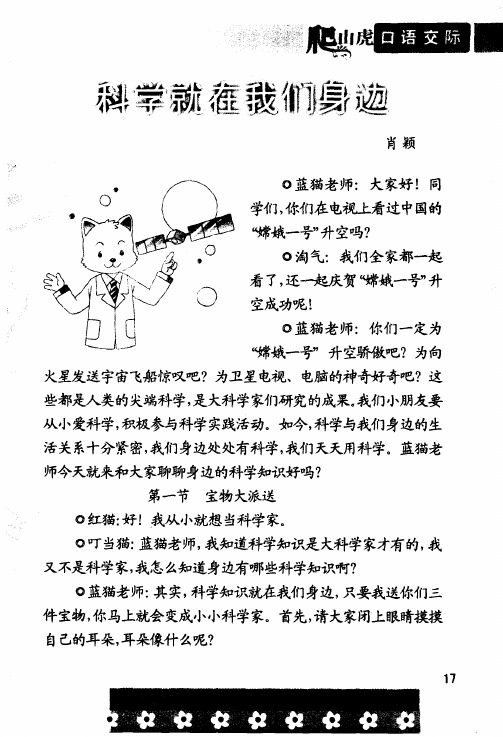 爬山虎 口语交际
科学就在我们身边
肖颖
◎蓝猫老师：大家好！同
学们，你们在电视上看过中国的
“嫦娥一号”升空吗？
◎淘气：我们全家都一起
看了，还一起庆贺“嫦娥一号”升
空成功呢！
◎蓝猫老师：你们一定为
“嫦娥一号”升空骄傲吧？为向
火星发送宇宙飞船惊叹吧？为卫星电视、电脑的神奇好奇吧？这
些都是人类的尖端科学，是大科学家们研究的成果。我们小朋友要
从小爱科学，积极参与科学实践活动。如今，科学与我们身边的生
活关系十分紧密，我们身边处处有科学，我们天天用科学。蓝猫老
师今天就来和大家聊聊身边的科学知识好吗？
第一节 宝物大派送
◎红猫：好！我从小就想当科学家。
◎叮当猫：蓝猫老师，我知道科学知识是大科学家才有的，我
又不是科学家，我怎么知道身边有哪些科学知识啊？
◎蓝猫老师：其实，科学知识就在我们身边，只要我送你们三
件宝物，你马上就会变成小小科学家。首先，请大家闭上眼睛摸摸
自己的耳朵，耳朵像什么呢？
17